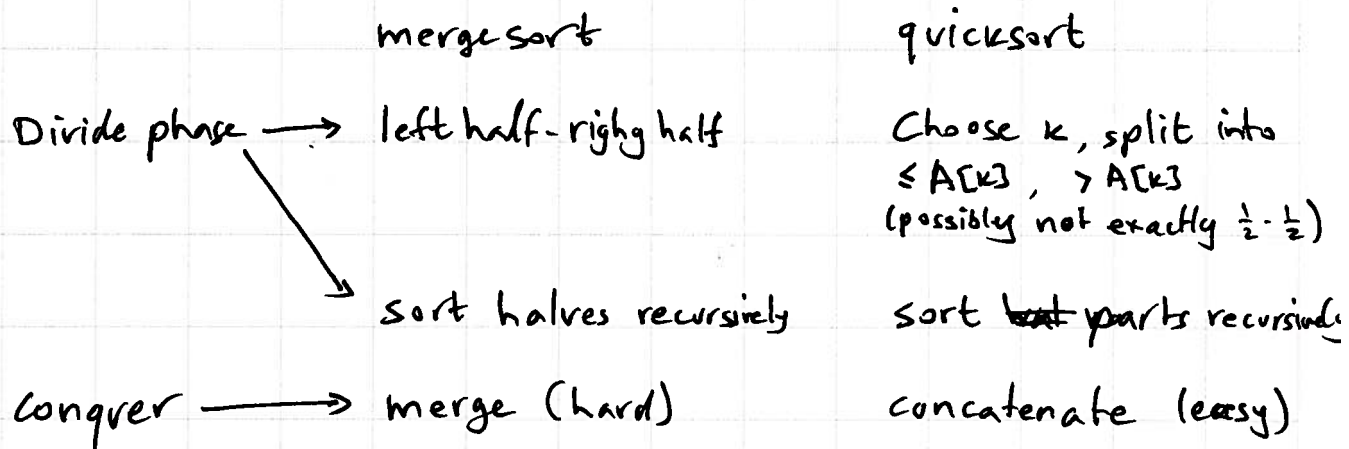 mergesort quicksort
Divide phase → left half - righg half Choose k, split into
≤ A[k], > A[k]
(possibly not exactly ½ - ½)
sort halves recursively sort parts recursively
conquer → merge (hard) concatenate (easy)